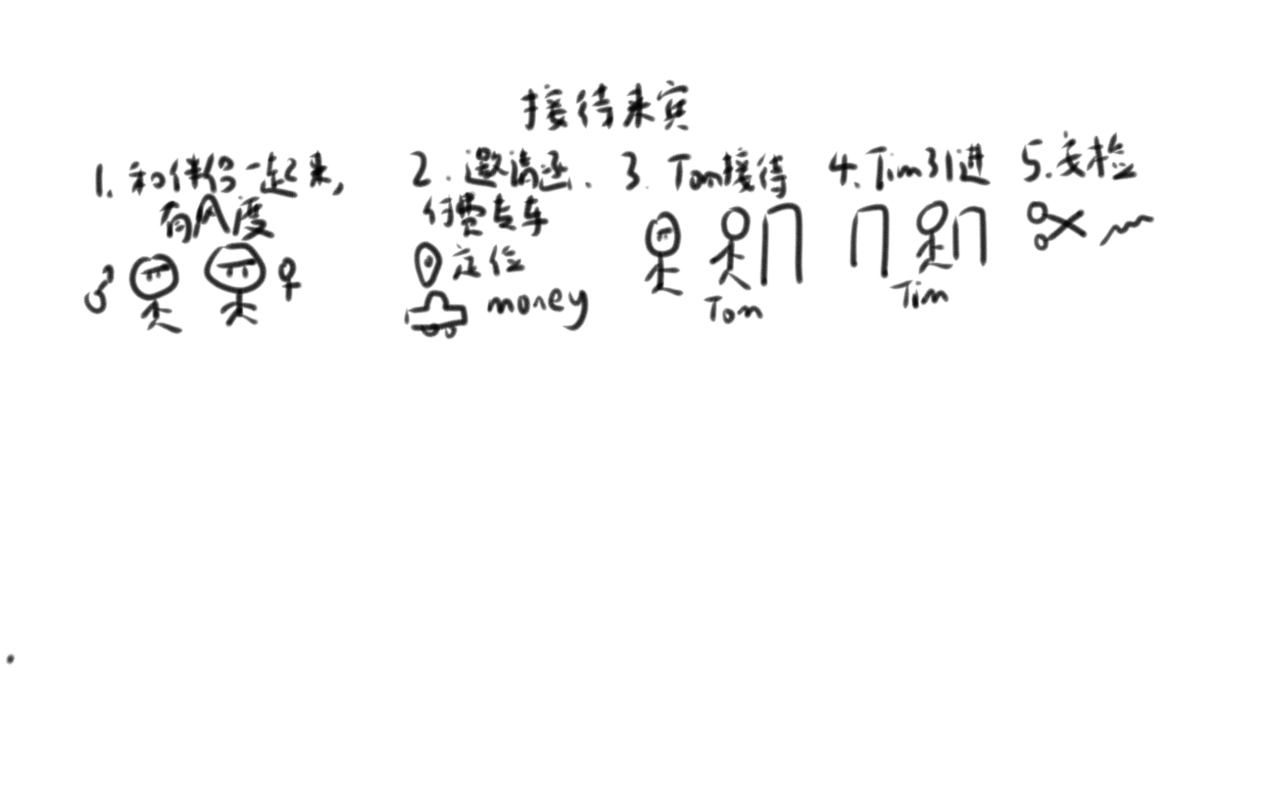 接待来宾
1. 和伴侣一起来,
有风度
2. 邀请函.
付费专车
定位
money
3. Tom接待
Tom
4. Tim引进
Tim
5. 安检